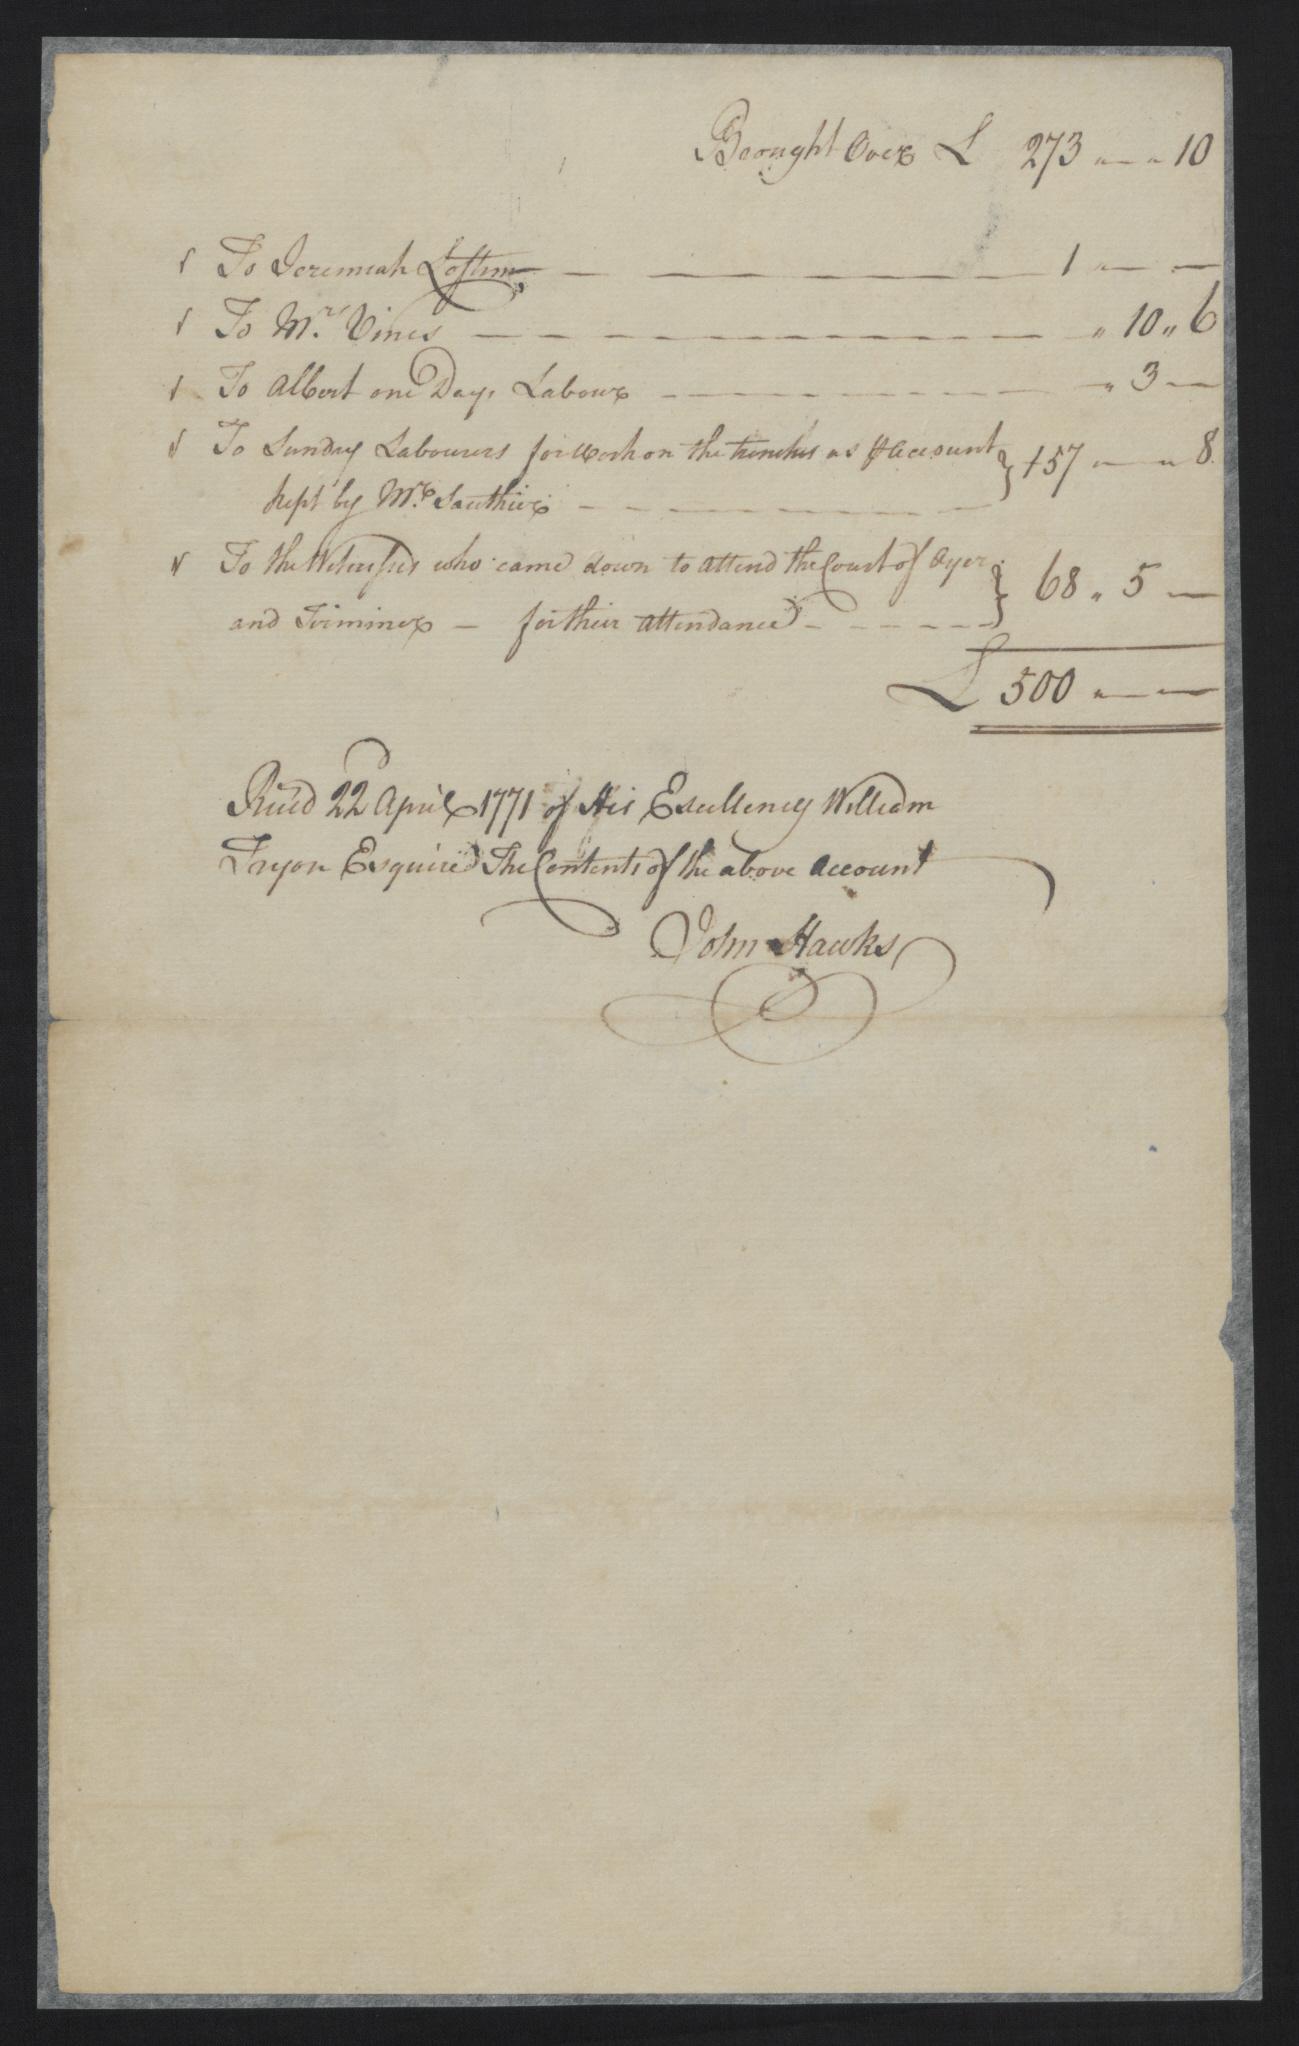 Brought Over £ 273 „ — „ 10
√ To Jeremiah Loftin — — — — 1 „ — —
√ To Mrs. Vines — — — — „ 10 „ 6
√ To Albert one Days Labour — — — — „ 3 —
√ To Sundry Labourers for work on the trenches as ⅌ Account } 157 „ — „ 8
kept by Mr. Sauthier — — — —
√ To the Witnesses who came down to attend the Court of Oyer } 68 „ 5 —
and Terminer — for their attendance — — — —
£ 500 „ — —
Recd 22 April 1771 of His Excellency William
Tryon Esquire The Contents of the above Account
John Hawks